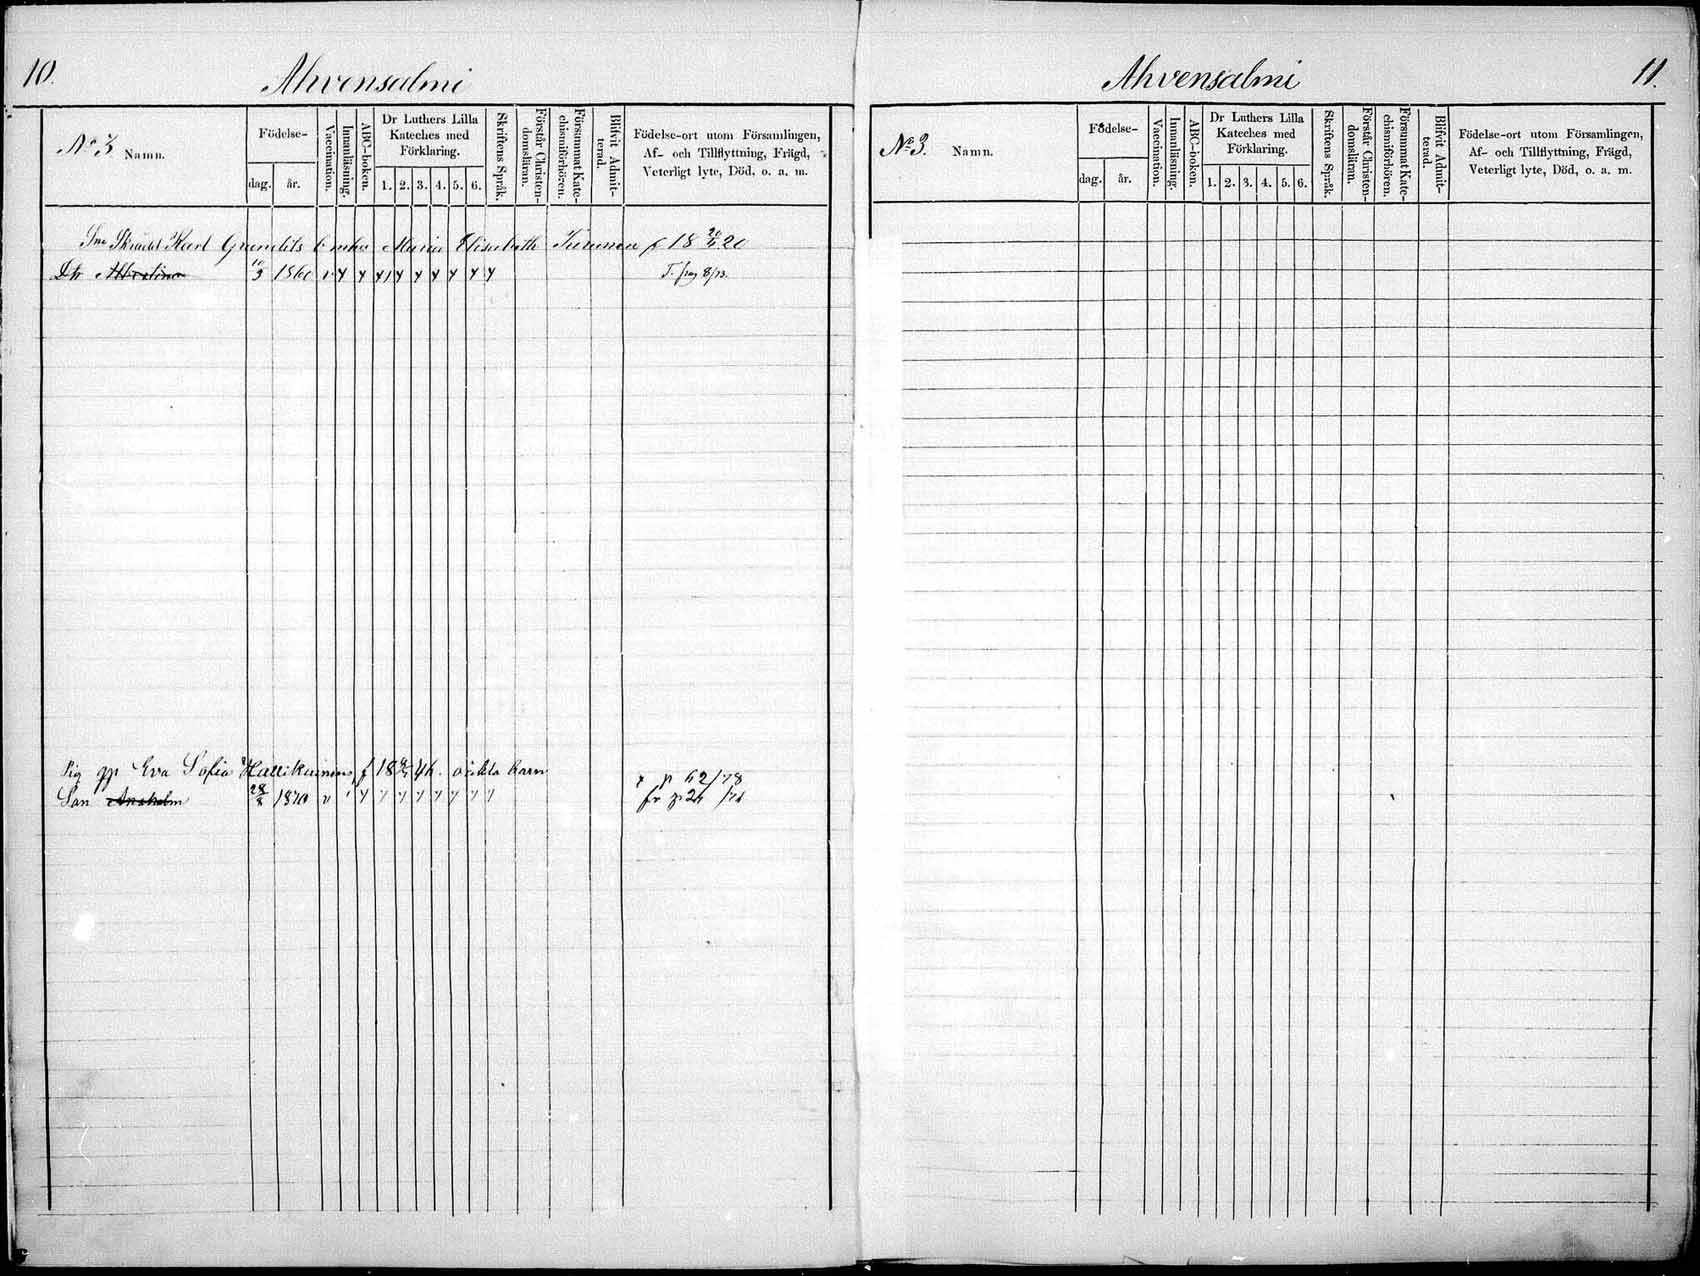 10.
Ahvensalmi
No 3 Namn.
Födelse-
dag.
år.
Vaccination.
Innanläsning.
ABC-boken.
Dr Luthers Lilla
Kateches med
Förklaring.
1. 2. 3. 4. 5. 6.
Skriftens Språk.
Förstår Christen-
domsläran.
Försummat Kate-
chismiförhören.
Blifvit Admit-
terad.
Födelse-ort utom Församlingen,
Af- och Tillflyttning, Frägd,
Veterligt lyte, Död, o. a. m.
Karl Maria Elisabeth Turunen f 18 20/11 20
Dtr Albertina 10/3 1860
Pig Eva Sofia f 18 44. oäkta barn
p 62/78
Son 28/8 1870
fr p 24 /71
11.
Ahvensalmi
No 3. Namn.
Födelse-
dag.
år.
Vaccination.
Innanläsning.
ABC-boken.
Dr Luthers Lilla
Kateches med
Förklaring.
1. 2. 3. 4. 5. 6.
Skriftens Språk.
Förstår Christen-
domsläran.
Försummat Kate-
chismiförhören.
Blifvit Admit-
terad.
Födelse-ort utom Församlingen,
Af- och Tillflyttning, Frägd,
Veterligt lyte, Död, o. a. m.